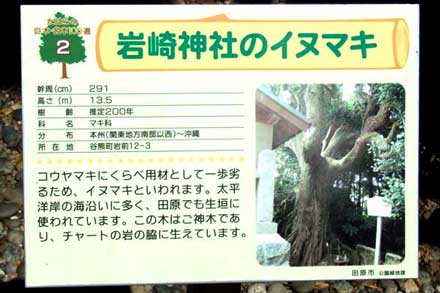 たはらの
巨木・名木100選
2
岩崎神社のイヌマキ
幹周(cm) 291
高さ(m) 13.5
樹 齢 推定200年
科 名 マキ科
分 布 本州(関東地方南部以西)~沖縄
所 在 地 谷熊町岩前12-3
コウヤマキにくらべ用材として一歩劣
るため、イヌマキといわれます。太平
洋岸の海沿いに多く、田原でも生垣に
使われています。この木はご神木であ
り、チャートの岩の脇に生えています。
田原市 公園緑地課